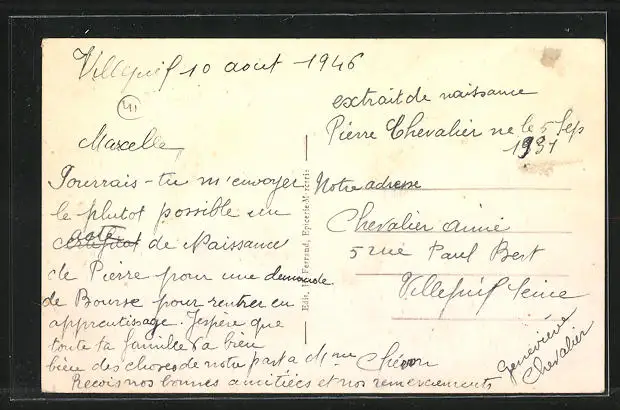 Villejuif 10 aout 1946
41
Marcelle,
Pourrais-tu m'envoyer
le plutot possible un
certificat acte de Naissance
de Pierre pour une demande
de Bourse pour rentrer en
apprentissage. J'espère que
toute ta famille va bien
bien des choses de notre part a Mme
Reçois nos bonnes amitiées et nos remerciements
Edit. Ferrand, Epicerie-Mercerie
extrait de naissance
Pierre Chevalier ne le 5 Sep
1931
Notre adresse
Chevalier aimé
5 rue Paul Bert
Villejuif Seine
Geneviève
Chevalier